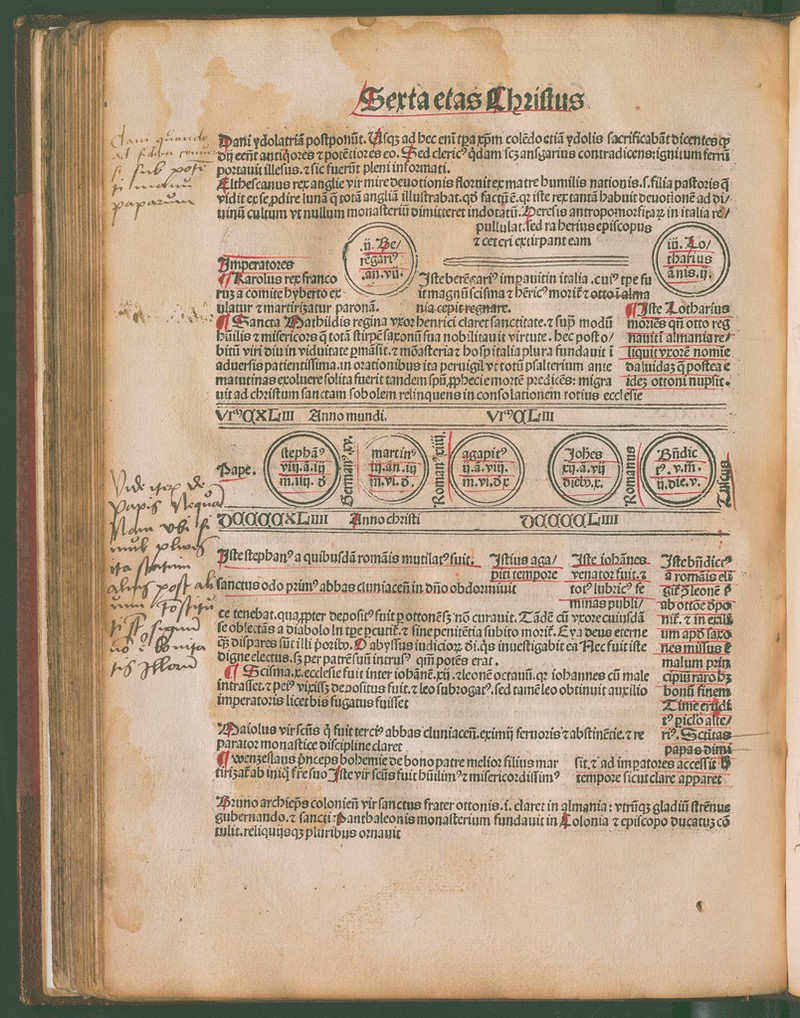 Sexta etas Christus
Dani ydolatriā postponūt. Usqȝ ad hec enī tpa xp̄m colēdo etiā ydolis sacrificabāt dicentes ꝙ
dij eēnt antiq̇ores ⁊ potētiores eo. Sed clericꝰ q̇dam scȝ ansgarius contradicens: ignitum ferrū
portauit illesus. ⁊ sic fuerūt pleni informati.
Altbescanus rex anglie vir mire deuotionis floruit ex matre humilis nationis .s. filia pastoris q̄
vidit ex se ꝓdire lunā q̄ totā angliā illustrabat. qd̄ factū ē. qꝛ iste rex tantā habuit deuotionē ad di/
uinū cultum vt nullum monasteriū dimitteret indotatū. Heresis antropomorfitaꝝ in italia re/
pullulat. sed ratherius episcopus
⁊ ceteri extirpant eam
.ij. Be/
rēgariꝰ
.an. vij.
iij. Lo/
tharius
ānis. ij.
Imperatores
¶ Karolus rex franco
ruȝ a comite hyberto ex
ulatur ⁊ martirizatur paronā.
Iste berēgariꝰ impauit in italia .cuiꝰ tpe fu
it magnū scisma ⁊ hēricꝰ morit̄ ⁊ otto ī alma
nia cepit regnare.
¶ Iste Lotharius
moriēs qn̄ otto reg
nauit ī almania re/
liquit vxorē nomie
daluidaȝ q̄ postea e
ideȝ ottoni nupsit.
¶ Sancta Mathildis regina vxor henrici claret sanctitate. ⁊ sup̄ modū
hūilis ⁊ misericors q̄ totā stirpē saxonū sua nobilitauit virtute. hec post o/
bitū viri diu in viduitate ꝑmāsit. ⁊ mōasteria ⁊ hospitalia plura fundauit ī
aduersis patientissima. in orationibus ita peruigil vt totū psalterium ante
matutinas exoluere solita fuerit tandem spū ꝓphecie mortē predicēs: migra
uit ad christum sanctam sobolem relinquens in consolationem totius ecclesie
Anno mundi.
Pape.
stephāꝰ
viij. a. iij
m. iiij. d
Germanꝰ. xv.
martinꝰ
iij. an. iij
m. vi. d.
Romanꝰ xiij.
agapitꝰ
ij. a. viij.
m. vi. d x
Johēs
xij. a. vij
dieb.x.
Romanus
Bn̄dic
tꝰ. v. m̄.
ij. die. v.
Tuscus
Anno christi
Iste stephanꝰ a quibusdā romāis mutilatꝰ fuit.
Istius aga/
piti tempore
sanctus odo prīmꝰ abbas cluniaceñ in dn̄o obdormiuit
Iste iohānes
venator fuit. ⁊
totꝰ lubricꝰ se
minas publi/
ce tenebat. quaꝓpter depositꝰ fuit ꝑ ottonē sȝ nō curauit. Tādē cū vxore cuiusdā
se oblectās a diabolo in tpe ꝑcutit̄. ⁊ sine penitētia subito morit̄. Eya deus eterne
qȝ dispares sūt illi prioribꝰ. O abyssus iudicioꝝ dī. q̇s inuestigabit ea Nec fuit iste
digne electus. sȝ per patrē suū intrusꝰ qm̄ potēs erat.
¶ Scisma. x. ecclesie fuit inter iohānē. xij. ⁊ leonē octauū. qꝛ iohannes cū male
intrasset. ⁊ peiꝰ vixisset depositus fuit. ⁊ leo subrogatꝰ. sed tamē leo obtinuit auxilio
imperatoris licet bis fugatus fuisset
Iste bn̄dictꝰ
a romāis ele
gitꝰ leonē ē
ab ottōe depo
nit̄. ⁊ in exili
um apd̄ saxo
nes missus ē
malum prin
cipiū raro hȝ
bonū finem
riꝰ. Scītas
papas dimi
Maiolus vir scūs q̇ fuit terciꝰ abbas cluniaceñ. eximij feruoris ⁊ abstinētie. ⁊ re
parator monastice discipline claret
¶ Wenzeslaus prīceps bohemie de bono patre melior filius mar
tirizat̄ ab iniq̄ fr̄e suo Iste vir scūs fuit hūilimꝰ ⁊ misericordissimꝰ
sit. ⁊ ad impatores accessit
tempore sicut clare apparet
Bruno archiep̄s colonieñ vir sanctus frater ottonis. i. claret in almania: vtrūqȝ gladiū strēnue
gubernando. ⁊ sancti Panthaleonis monasterium fundauit in Colonia ⁊ episcopo ducatuȝ cō
tulit. reliquijsqȝ pluribus ornauit